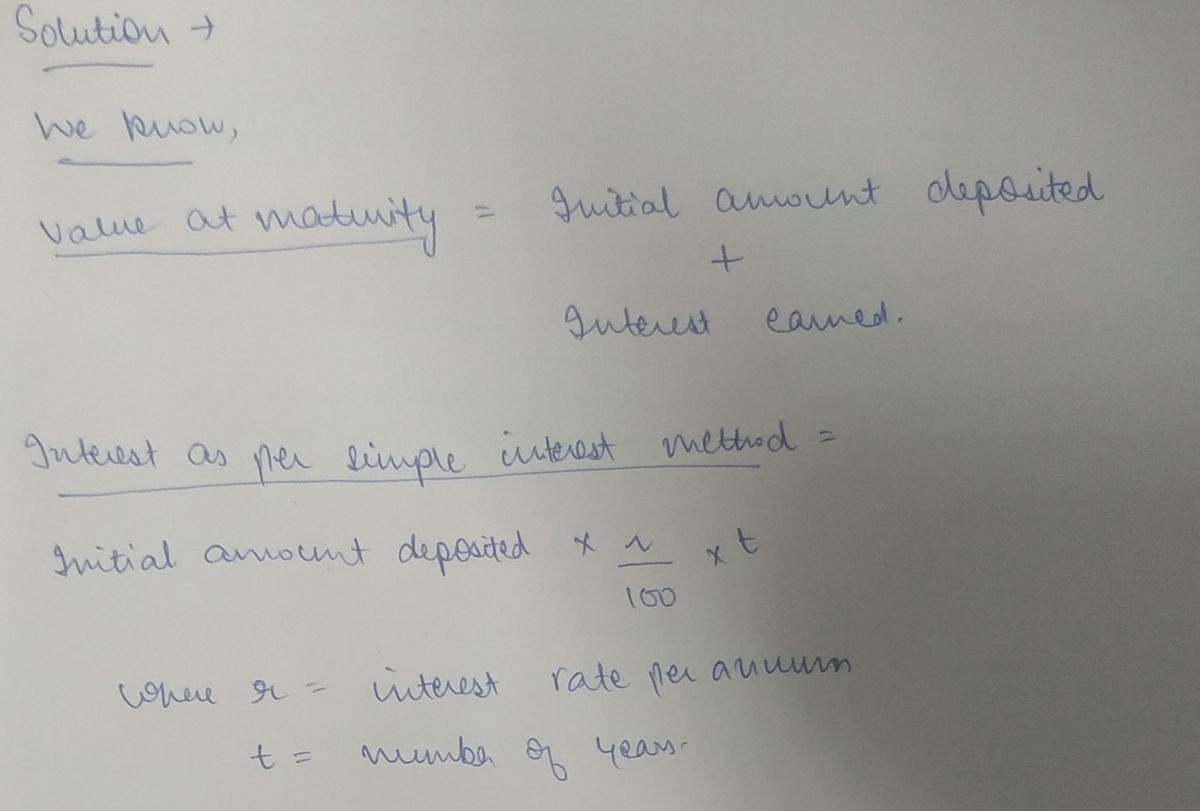 Solution →
We know,
value at maturity = Initial amount deposited
+
Interest earned.
Interest as per simple interest method =
Initial amount deposited × r/100 × t
where r = interest rate per annum
t = number of years.